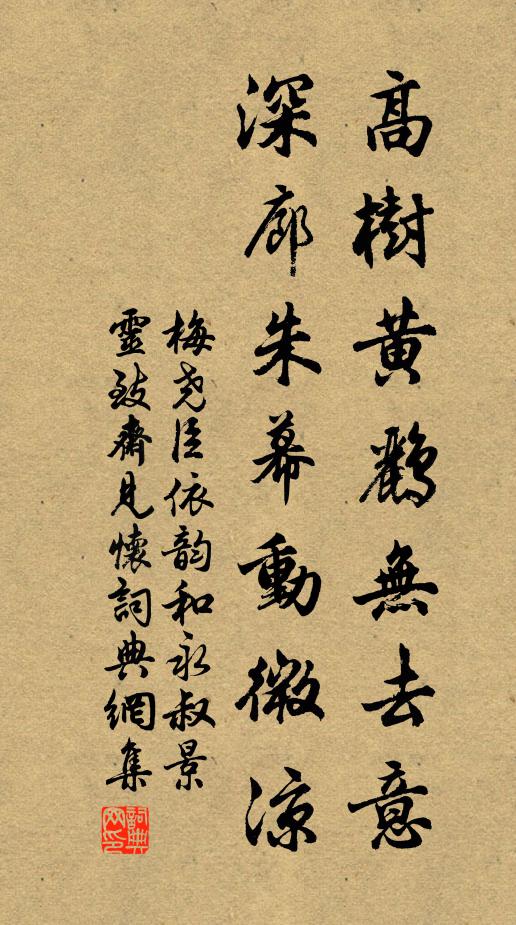 高樹黄鸝無去意
深廊朱幕動微涼
梅尧臣依韵和永叔景
靈致齋見懷詞典網集
詞典网印